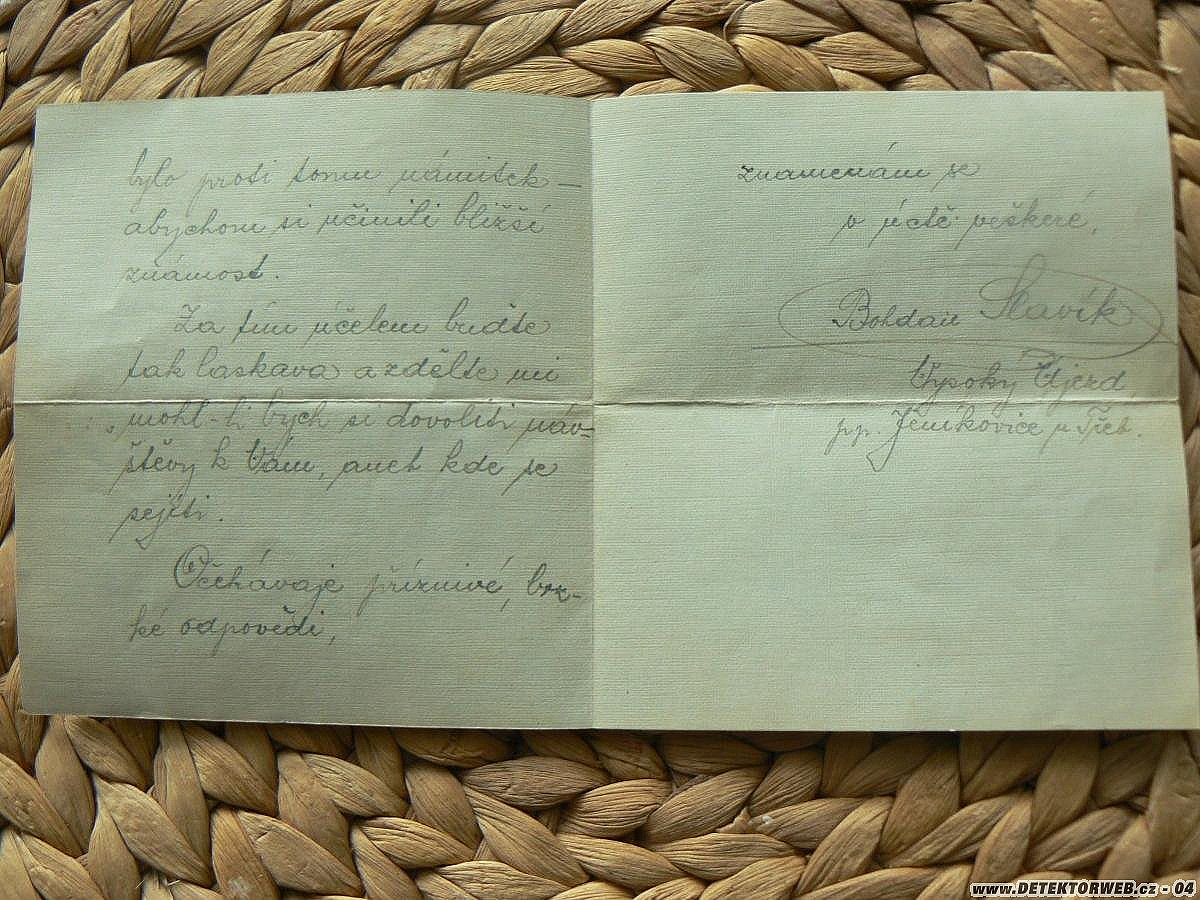 bylo proti tomu námitek –
abychom si učinili bližší
známost.
Za tím účelem buďte
tak laskava a zdělte mi
mohl-li bych si dovoliti náv-
štěvy k Vám, anet kde se
sejíti.
Očekávaje příznivé, brz-
ké odpovědi,
znamenám se
v úctě veškeré,
Bohdan Slavík
Vysoký Újezd
pp. Jeníkovice u Třeb.
www.DETEKTORWEB.cz - 04